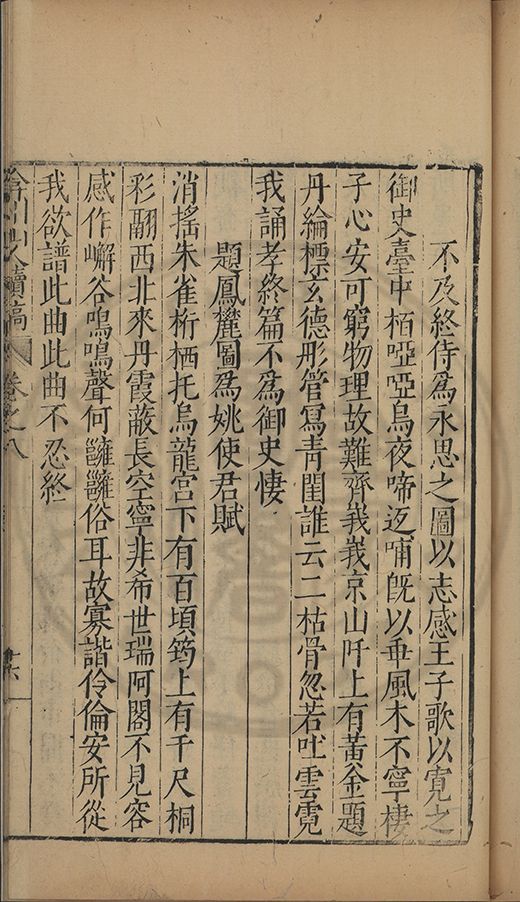 不及終侍爲永思之圖以志感王子歌以寛之
御史臺中栢啞啞烏夜啼返哺旣以乖風木不寧棲
子心安可窮物理故難齊峩峩京山阡上有黃金題
丹綸標玄德彤管寫青閨誰云二枯骨忽若吐雲霓
我誦孝終篇不爲御史悽
題鳳麓圖爲姚使君賦
消搖朱雀桁栖托烏龍宮下有百頃筠上有千尺桐
彩翮西北來丹霞蔽長空寧非希世瑞阿閣不見容
感作嶰谷鳴鳴聲何雝雝俗耳故寡諧伶倫安所從
我欲譜此曲此曲不忍終
續稿 卷之八